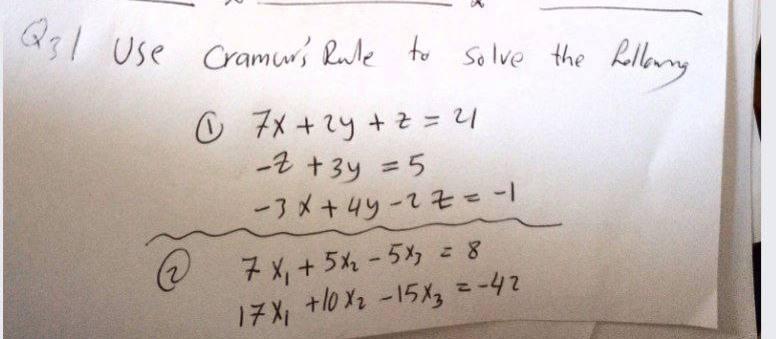 Q3/ Use Cramur's Rule to solve the following
① 7x + 2y + z = 21
-z + 3y = 5
-3x + 4y - 2z = -1
② 7x₁ + 5x₂ - 5x₃ = 8
17x₁ + 10x₂ - 15x₃ = -42